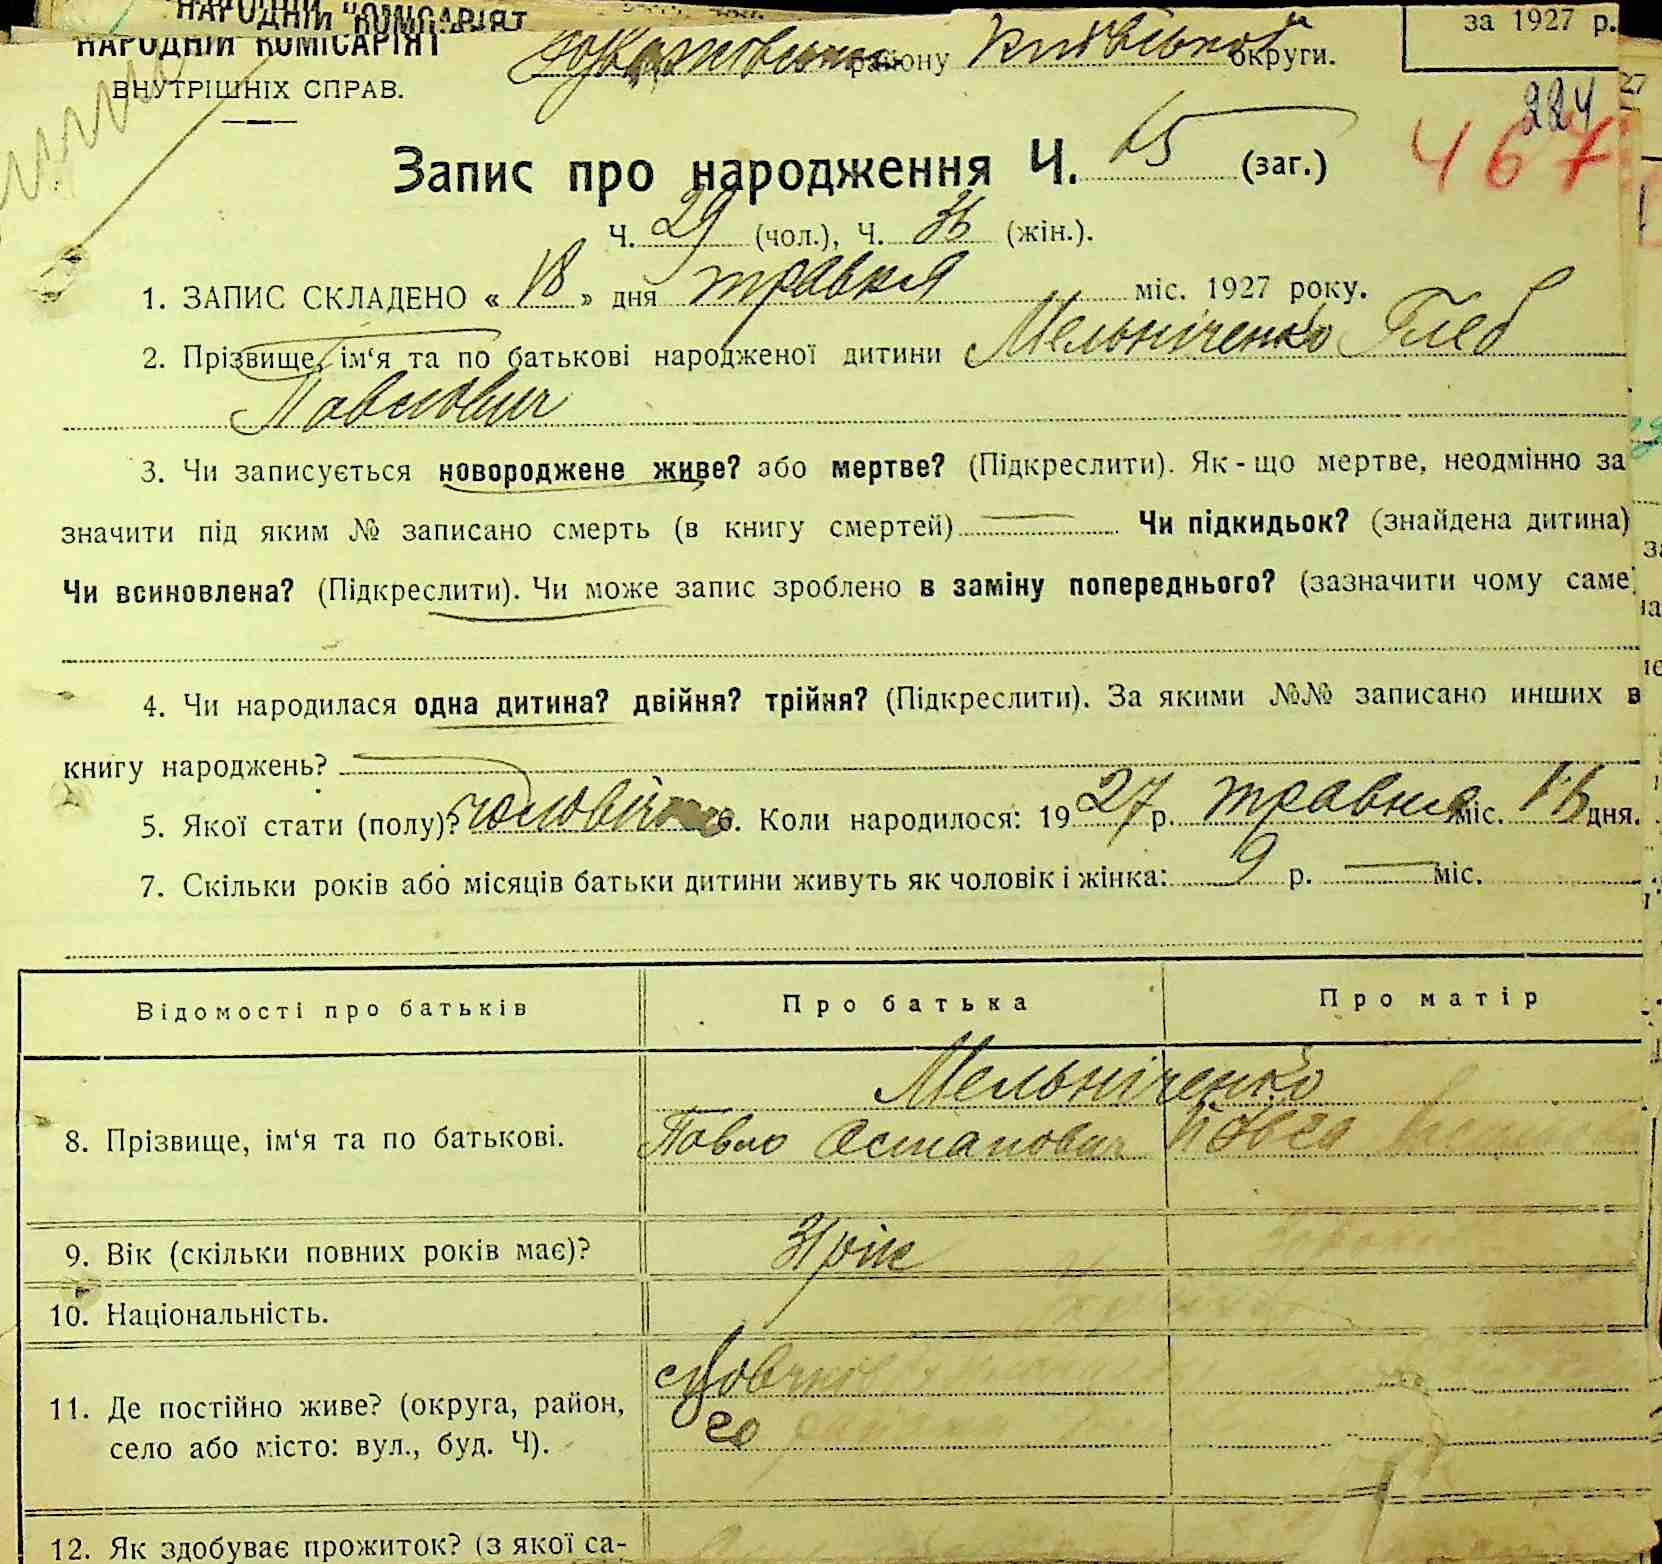 НАРОДНІЙ КОМІСАРІЯТ
НАРОДНІЙ КОМІСАРІЯТ
ВНУТРІШНІХ СПРАВ.
району Київської округи.
за 1927 р.
224
467
Запис про народження Ч. 65 (заг.)
Ч. 29 (чол.), Ч. 36 (жін.).
1. ЗАПИС СКЛАДЕНО « 18 » дня травня міс. 1927 року.
2. Прізвище, ім‘я та по батькові народженої дитини Мельніченко Глеб
Павлович
3. Чи записується новороджене живе? або мертве? (Підкреслити). Як-що мертве, неодмінно за
значити під яким № записано смерть (в книгу смертей) — Чи підкидьок? (знайдена дитина)
Чи всиновлена? (Підкреслити). Чи може запис зроблено в заміну попереднього? (зазначити чому саме
4. Чи народилася одна дитина? двійня? трійня? (Підкреслити). За якими №№ записано инших в
книгу народжень?
5. Якої стати (полу)? 6. Коли народилося: 1927 р. травня міс. 16 дня.
7. Скільки років або місяців батьки дитини живуть як чоловік і жінка: 9 р. — міс.
Відомості про батьків Про батька Про матір
Мельніченко
8. Прізвище, ім‘я та по батькові. Павло Остапович
9. Вік (скільки повних років має)? 31 рік
10. Національність.
11. Де постійно живе? (округа, район,
село або місто: вул., буд. Ч).
12. Як здобуває прожиток? (з якої са-